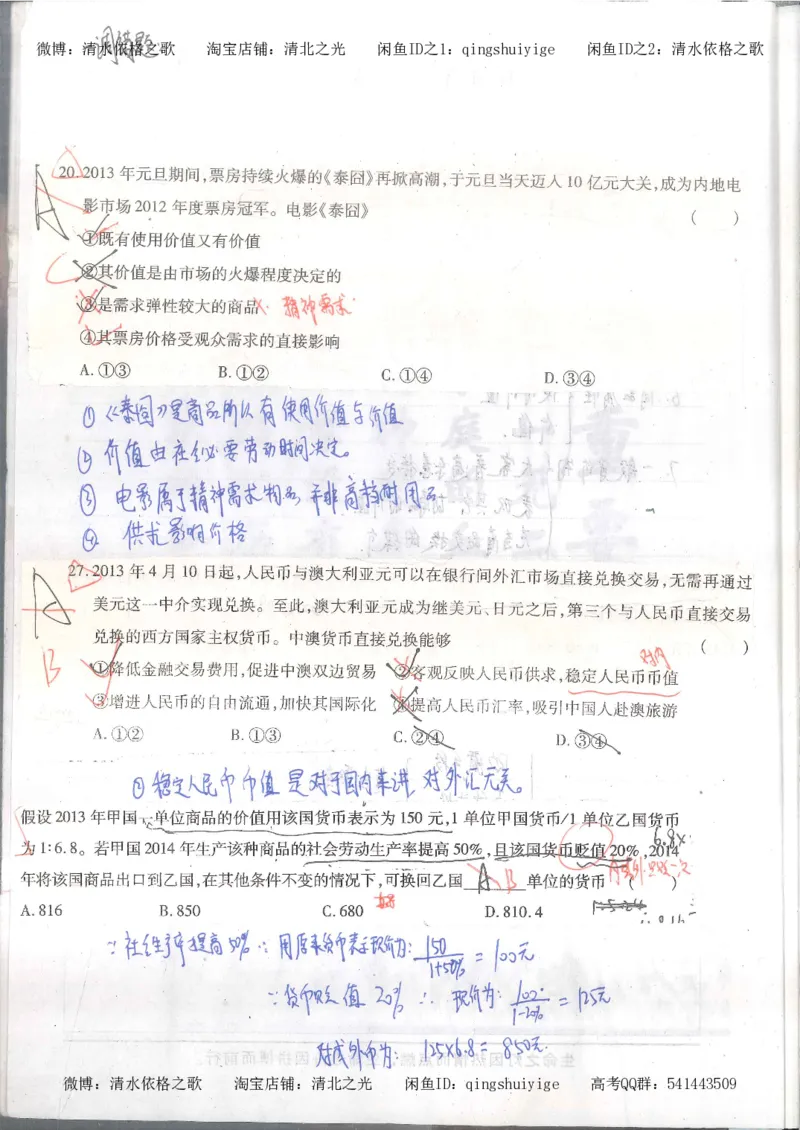 调错题
微博：清水依格之歌 淘宝店铺：清北之光 闲鱼ID之1：qingshuiyige 闲鱼ID之2：清水依格之歌
20.2013 年元旦期间,票房持续火爆的《泰囧》再掀高潮,于元旦当天迈入 10 亿元大关,成为内地电
影市场 2012 年度票房冠军。电影《泰囧》 ( )
A
①既有使用价值又有价值
②其价值是由市场的火爆程度决定的
③是需求弹性较大的商品 × 精神需求
④其票房价格受观众需求的直接影响
A.①③ B.①② C.①④ D.③④
① 《泰囧》是商品所以有使用价值与价值
② 价值由社会必要劳动时间决定。
③ 电影属于精神需求物品 并非高档耐用品
④ 供求影响价格
27.2013 年 4 月 10 日起,人民币与澳大利亚元可以在银行间外汇市场直接兑换交易,无需再通过
A
美元这一中介实现兑换。至此,澳大利亚元成为继美元、日元之后,第三个与人民币直接交易
兑换的西方国家主权货币。中澳货币直接兑换能够 ( )
B
对内
①降低金融交易费用,促进中澳双边贸易 ②客观反映人民币供求,稳定人民币币值
③增进人民币的自由流通,加快其国际化 ④提高人民币汇率,吸引中国人赴澳旅游
A.①② B.①③ C.②④ D.③④
② 稳定人民币币值 是对于国内来讲 对外汇无关。
假设 2013 年甲国一单位商品的价值用该国货币表示为 150 元,1 单位甲国货币/1 单位乙国货币
为 1:6.8。若甲国 2014 年生产该种商品的社会劳动生产率提高 50%,且该国货币贬值 20%,2014
年将该国商品出口到乙国,在其他条件不变的情况下,可换回乙国 A B 单位的货币 ( )
A.816 B.850 C.680 D.810.4
∵社会生产率提高50% ∴用原来货币表示现价为: 150/1+50% = 100元
∵货币贬值20% ∴现价为: 100/1-20% = 125元
对成外币为: 125×6.8= 850元.
微博：清水依格之歌 淘宝店铺：清北之光 闲鱼ID：qingshuiyige 高考QQ群：541443509